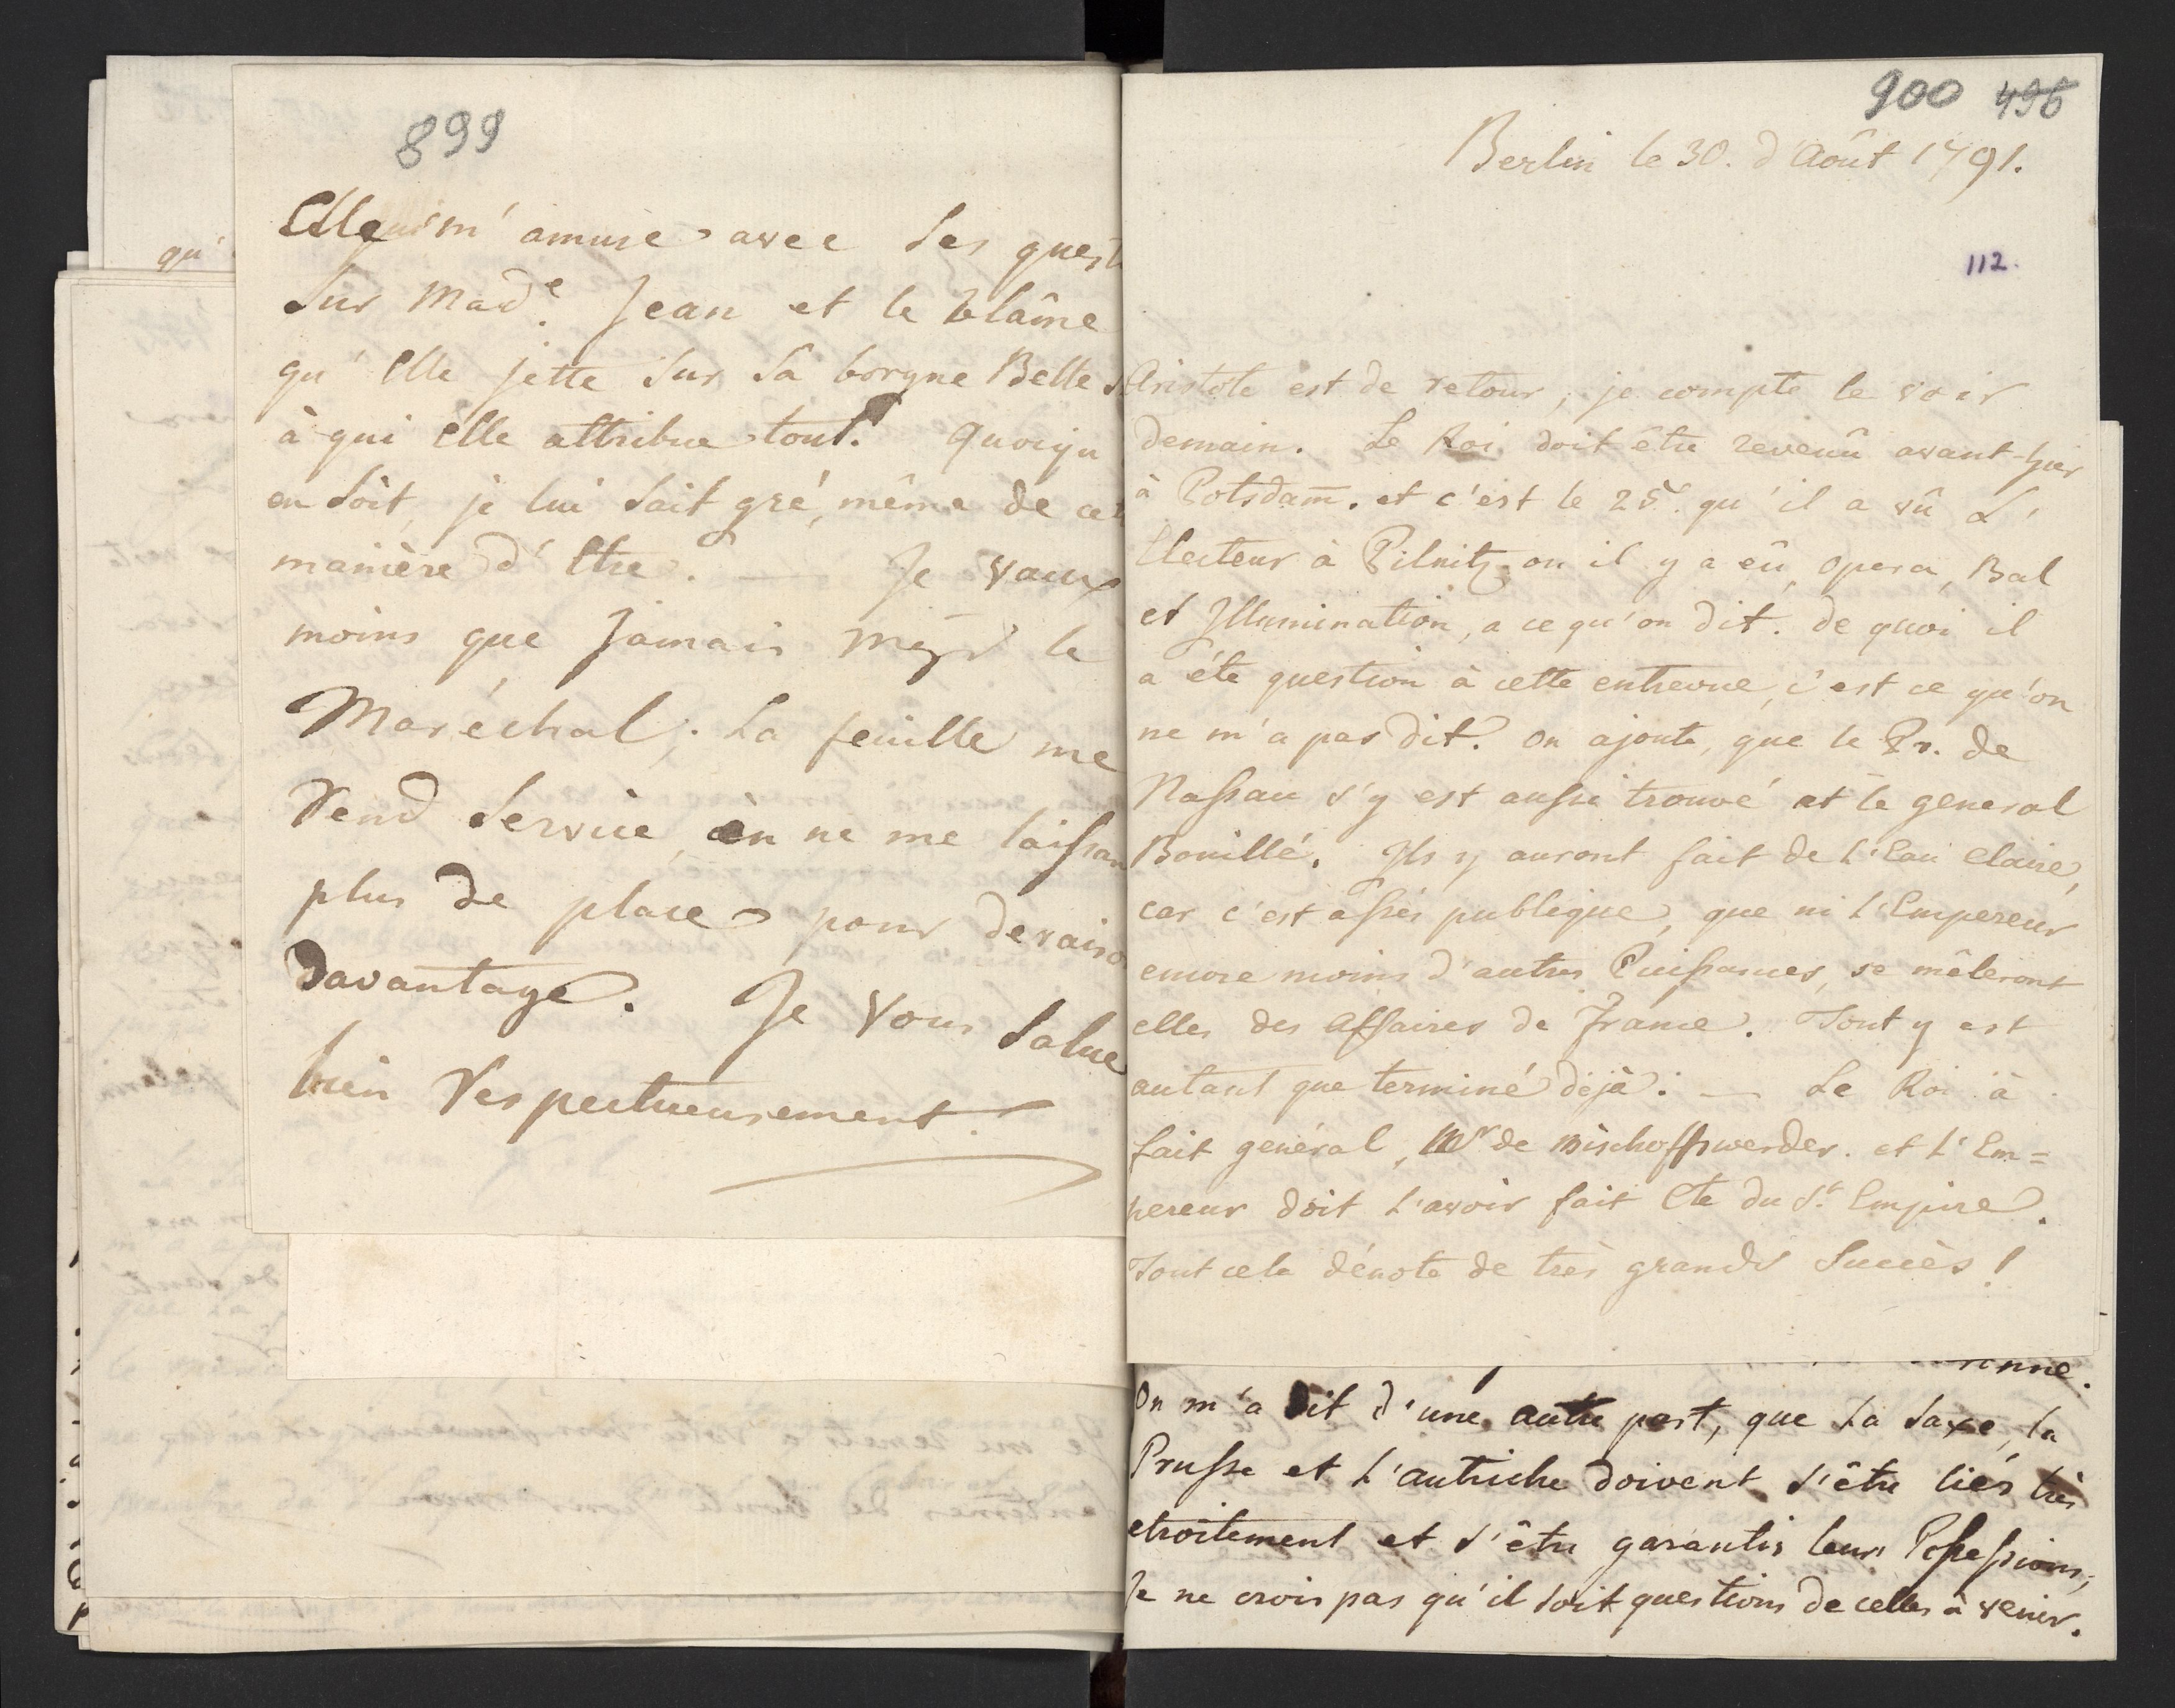 899
qu'
Elle m'amuse avec ses quest
sur Made. Jean et le blâme
qu'elle jette sur sa borgne Belle s
à qui elle attribue tout. quoiqu
en soit, je lui sait gré, même de cet
manière d'être. — Je vaux
moins que jamais Msgr le
Maréchal; La feuille me
rend service, en ne me laissan
plus de place pour deraiso
davantage. Je vous salue
bien respectueusement.
900 496
Berlin le 30. d'Août 1791.
112.
Aristote est de retour, je compte le voir
demain. Le Roi doit être revenû avant-hier
à Potsdam. et c'est le 25. qu'il a vû L'
Electeur à Pilnitz ou il y a eû, opera, Bal
et Illumination, a ce qu'on dit. de quoi il
a été question à cette entrevue, c'est ce qu'on
ne m'a pas dit. on ajoute, que le Pr. de
Nassau s'y est aussi trouvé et le general
Bouillé. Ils y auront fait de l'Eau claire,
car c'est assés publique, que ni l'Empereur
encore moins d'autres Puissances, se mêleront
elles des affaires de france. Tout y est
autant que terminé dejà. — Le Roi à
fait general, Mr de Bischoffswerder. et l'Em=
pereur doit l'avoir fait Cte du St. Empire.
Tout cela dénote de très grands succès!
On m'a dit d'une autre part, que la Saxe, la
Prusse et l'autriche doivent s'être liés très
etroitement et s'être garantis leurs Possessions,
Je ne crois pas qu'il soit questions de celles à venir.